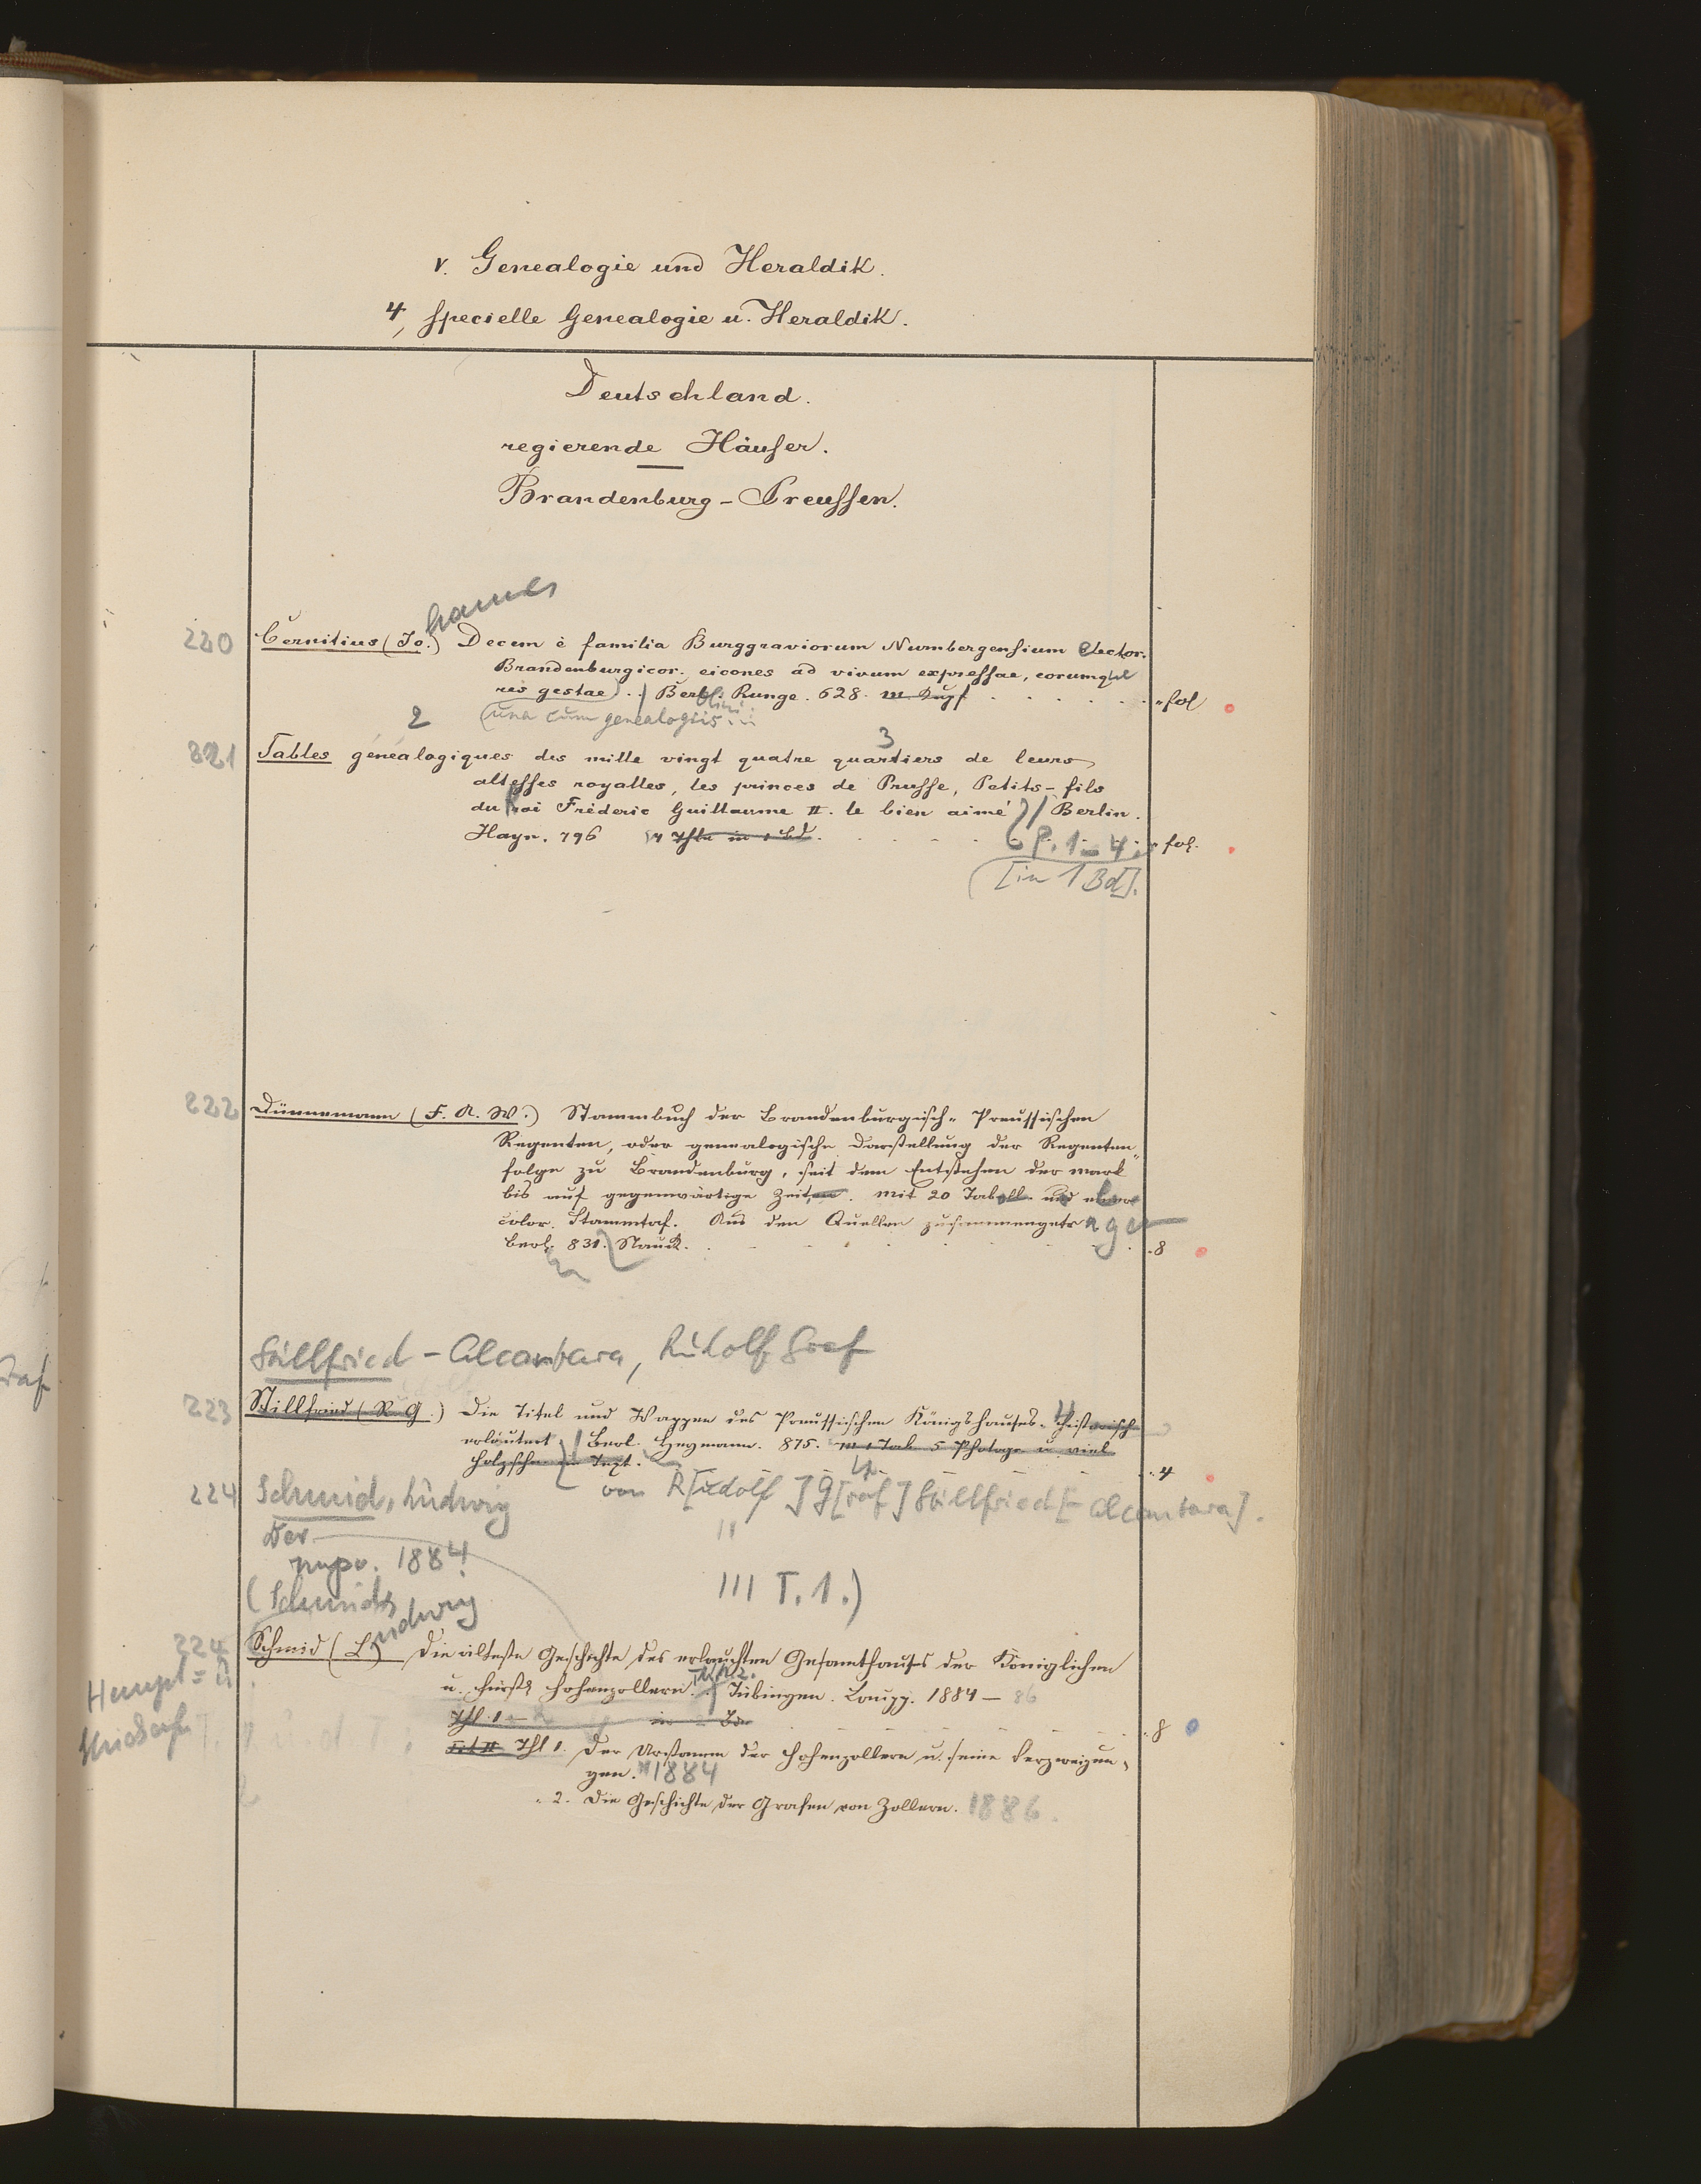 V. Genealogie und Heraldik.
4, specielle Genealogie u. Heraldik.
Deutschland.
regierende Häuser.
Brandenburg-Preussen.
hannes
220 Cernitius (Jo.) Decem è familia Burggraviorum Nurnbergensium Elector.
Brandenburgicor. eicones ad vivum expressae, eorumque
res gestae) . . / Berl. Runge. 628. m Kupf fol
(una cum genealogiis . . .
2 3
221 Tables généalogiques des mille vingt quatre quartiers de leurs
altesses royalles, les princes de Prusse, Petits-fils
du roi Fréderic Guillaume II. le bien aimé // Berlin.
Hayn. 796 4 Thle in 1 Bd. P. 1-4. fol.
[in 1 Bd].
222 Dünnemann (F. A. W.) Stammbuch der Brandenburgisch-Preussischen
Regenten, oder genealogische Darstellung der Regenten-
folge zu Brandenburg, seit dem Entstehen der Mark
bis auf gegenwärtige Zeiten. Mit 20 Tabell. und einer
color. Stammtaf. Aus den Quellen zusammengetragen
Berl. 831. Nauck. 8
Stillfried-Alcantara, Rudolf Graf
223 Stillfried (R. G.) Die Titel und Wappen des Preussischen Königshauses. Historisch
erläutert / Berl. Heymann. 875. m 1 Tab 5 Photogr u viel
Holzschn im Text. 4
von R[udolf] G[raf] Stillfried[-Alcantara].
224 Schmid, Ludwig
Der
1884
III T. 1.)
(Schmid, Ludwig
224 Schmid (L) Die älteste Geschichte des erlauchten Gesamthauses der Königlichen
Haupt= u.
u. Fürstl Hohenzollern. T. 1. 2. Tübingen. Laupp. 1884-86
Thl. 1-2 in Bde 8
Thl 1. Der Urstamm der Hohenzollern u. seine Verzweigun-
gen. 1884
2. Die Geschichte der Grafen von Zollern. 1886.